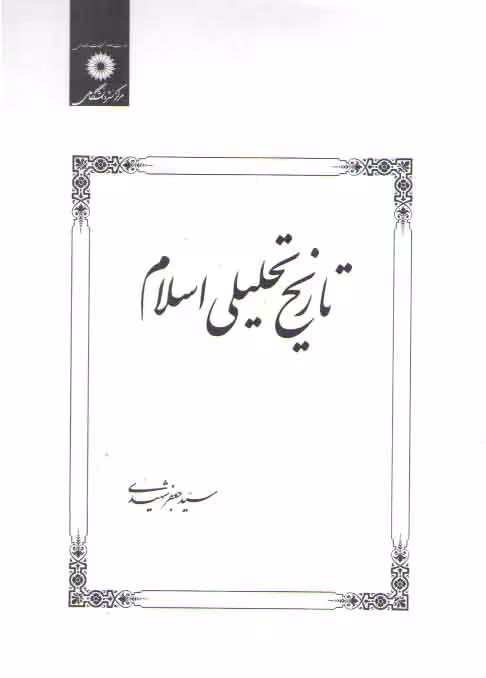 مرکز نشر دانشگاهی
تاریخ تحلیلی اسلام
سید جعفر شهیدی